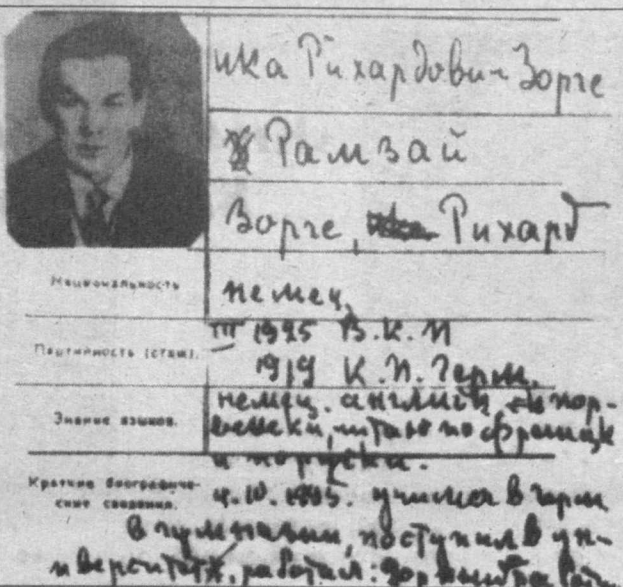 ика Рихардович Зорге
Рамзай
Зорге, Рихард
Национальность
немец,
III 1925 В.К.П
Партийность (стаж).
1919 К.П. Герм.
немец. англиск. и нор-
Знание языков.
вежски, читаю по француск
и поруски.
Краткие биографиче-
ские сведения.
4.10.1895. учился в Герм
в гимназии, поступил в ун-
иверситет, работал: